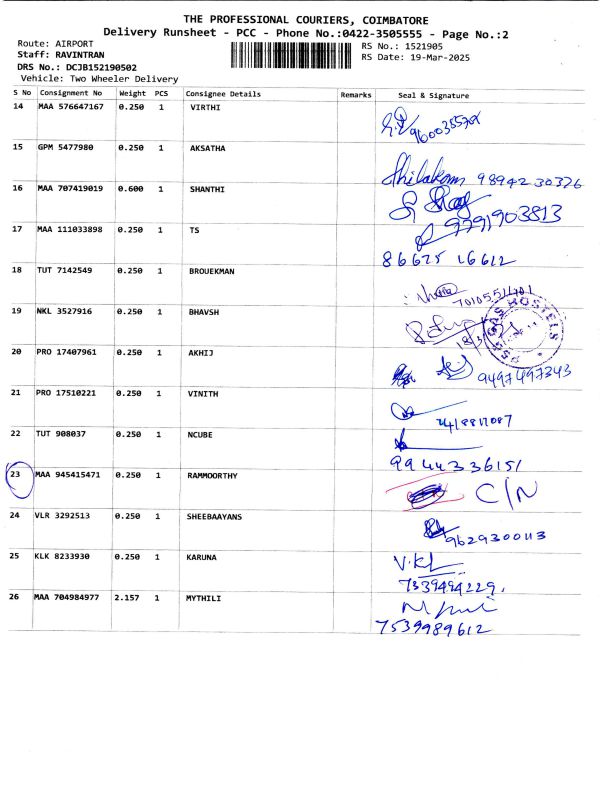 THE PROFESSIONAL COURIERS, COIMBATORE
Delivery Runsheet - PCC - Phone No.:0422-3505555 - Page No.:2
Route: AIRPORT
Staff: RAVINTRAN
DRS No.: DCJB152190502
Vehicle: Two Wheeler Delivery
RS No.: 1521905
RS Date: 19-Mar-2025
S No Consignment No Weight PCS Consignee Details Remarks Seal & Signature
14 MAA 576647167 0.250 1 VIRTHI
15 GPM 5477980 0.250 1 AKSATHA
9894230326
16 MAA 707419019 0.600 1 SHANTHI
9791903813
17 MAA 111033898 0.250 1 TS
86675 16612
18 TUT 7142549 0.250 1 BROUEKMAN
19 NKL 3527916 0.250 1 BHAVSH
HOSTELS
20 PRO 17407961 0.250 1 AKHIJ
9497497343
21 PRO 17510221 0.250 1 VINITH
22 TUT 908037 0.250 1 NCUBE
9944336151
23 MAA 945415471 0.250 1 RAMMOORTHY
C/N
24 VLR 3292513 0.250 1 SHEEBAAYANS
9629300113
25 KLK 8233930 0.250 1 KARUNA
7339494229.
26 MAA 704984977 2.157 1 MYTHILI
7539989612